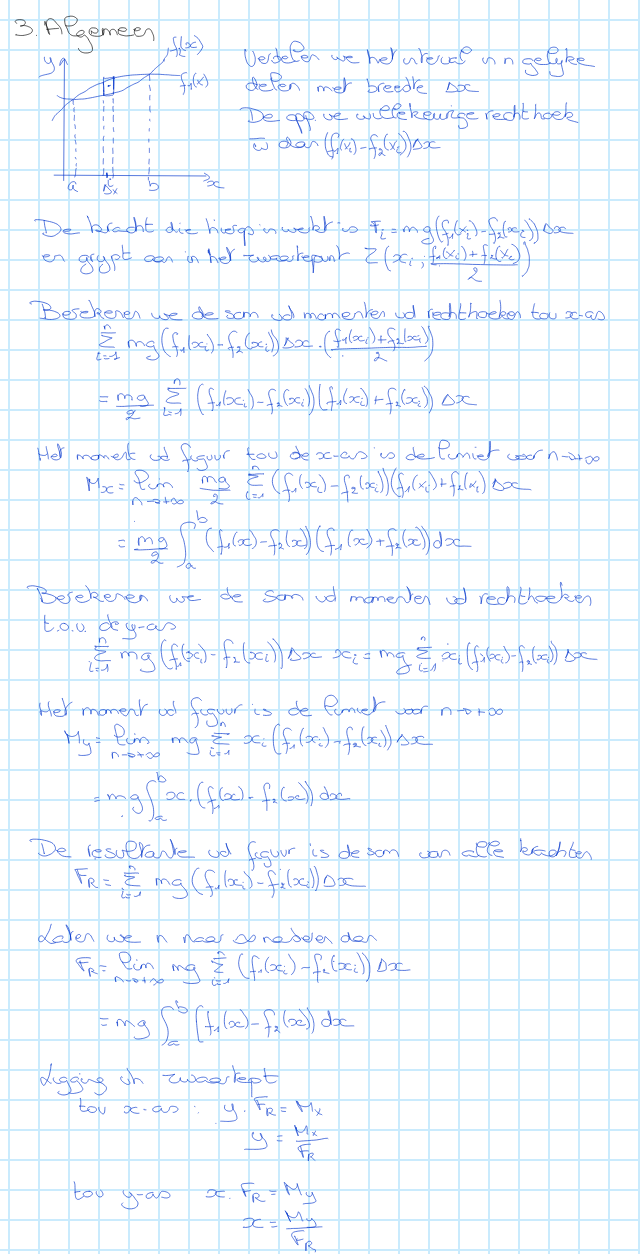 3. Algemeen
y
f₂(x)
f₁(x)
a
Δx
b
x
Verdelen we het interval in n gelijke
delen met breedte Δx
De opp. vᵉ willekeurige rechthoek
w̄ dan (f₁(xᵢ)-f₂(xᵢ))Δx
De kracht die hierop inwerkt is Fᵢ = mg(f₁(xᵢ)-f₂(xᵢ))Δx
en grijpt aan in het zwaartepunt Z(xᵢ, (f₁(xᵢ)+f₂(xᵢ))/2)
Berekenen we de som vd momenten vd rechthoeken tov x-as
∑ᵢ₌₁ⁿ mg(f₁(xᵢ)-f₂(xᵢ))Δx·((f₁(xᵢ)+f₂(xᵢ))/2)
= mg/2 ∑ᵢ₌₁ⁿ (f₁(xᵢ)-f₂(xᵢ))(f₁(xᵢ)+f₂(xᵢ))Δx
Het moment vd figuur tov de x-as is de limiet voor n→+∞
Mₓ = lim n→+∞ mg/2 ∑ᵢ₌₁ⁿ (f₁(xᵢ)-f₂(xᵢ))(f₁(xᵢ)+f₂(xᵢ) Δx
= mg/2 ∫ₐᵇ (f₁(x)-f₂(x))(f₁(x)+f₂(x))dx
Berekenen we de som vd momenten vd rechthoeken
t.o.v. de y-as
∑ᵢ₌₁ⁿ mg(f₁(xᵢ)-f₂(xᵢ))Δx xᵢ = mg ∑ᵢ₌₁ⁿ xᵢ(f₁(xᵢ)-f₂(xᵢ))Δx
Het moment vd figuur is de limiet voor n→+∞
My = lim n→+∞ mg ∑ᵢ₌₁ⁿ xᵢ(f₁(xᵢ)-f₂(xᵢ))Δx
= mg ∫ₐᵇ x.(f₁(x)-f₂(x))dx
De resultante vd figuur is de som van alle krachten
F_R = ∑ᵢ₌₁ⁿ mg(f₁(xᵢ)-f₂(xᵢ))Δx
Laten we n naar ∞ naderen dan
F_R = lim n→+∞ mg ∑ᵢ₌₁ⁿ (f₁(xᵢ)-f₂(xᵢ))Δx
= mg ∫ₐᵇ (f₁(x)-f₂(x))dx
Ligging vh zwaartept
tov x-as : y.F_R = Mₓ
y = Mₓ/F_R
tov y-as x.F_R = My
x = My/F_R